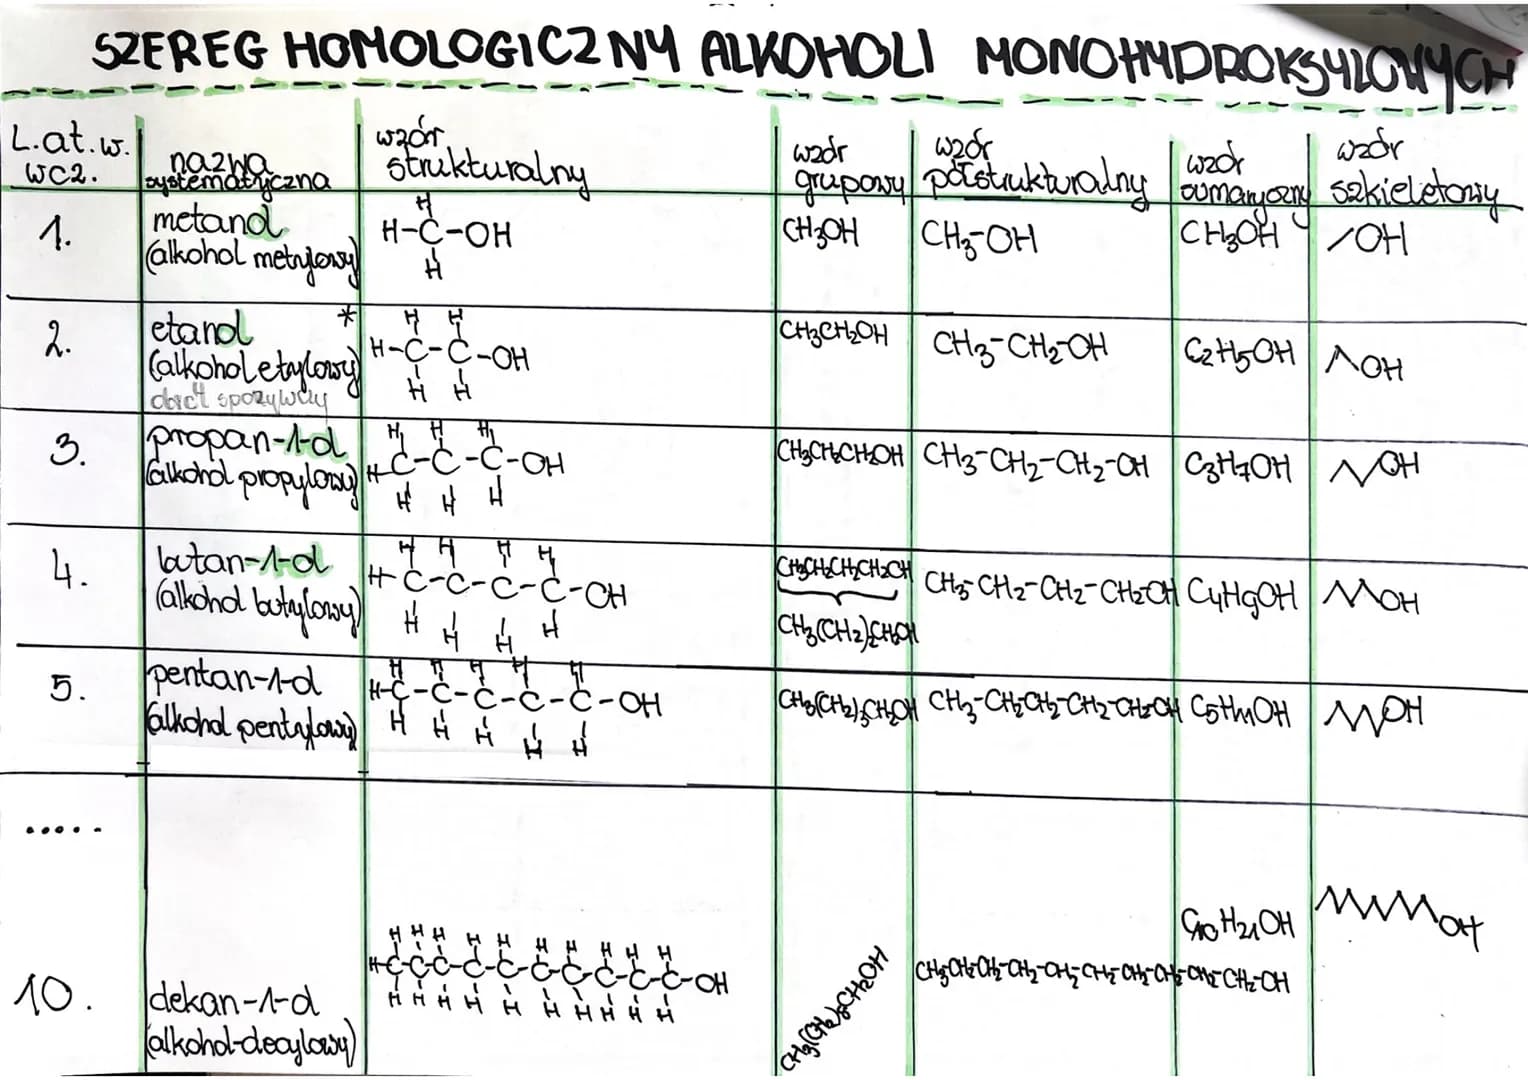 SZEREG HOMOLOGICZNY ALKOHOLI MONOHYDROKSYLOWYCH
L.at.w. wcz.
nazwa systematyczna
wzór strukturalny
wzór grupowy
wzór półstrukturalny
wzór sumaryczny
wzór szkieletowy
1.
metanol
(alkohol metylowy)
H
H-C-OH
H
CH3OH
CH3-OH
CH3OH
/OH
2.
etanol *
(alkohol etylowy)
ocet spożywczy
H H
H-C-C-OH
H H
CH3CH2OH
CH3-CH2-OH
C2H5OH
OH
3.
propan-1-ol
(alkohol propylowy)
H H H
H-C-C-C-OH
H H H
CH3CH2CH2OH
CH3-CH2-CH2-OH
C3H7OH
OH
4.
butan-1-ol
(alkohol butylowy)
H H H H
H-C-C-C-C-OH
H H H H
CH3CH2CH2CH2OH
CH3(CH2)2CH2OH
CH3-CH2-CH2-CH2OH
C4H9OH
OH
5.
pentan-1-ol
(alkohol pentylowy)
H H H H H
H-C-C-C-C-C-OH
H H H H H
CH3(CH2)3CH2OH
CH3-CH2CH2-CH2-CH2OH
C5H11OH
OH
.....
10.
dekan-1-ol
(alkohol-decylowy)
H H H H H H H H H H
H-C-C-C-C-C-C-C-C-C-C-OH
H H H H H H H H H H
CH3(CH2)8CH2OH
CH3CH2CH2-CH2-CH2-CH2-CH2-CH2-CH2-CH2-OH
C10H21OH
OH